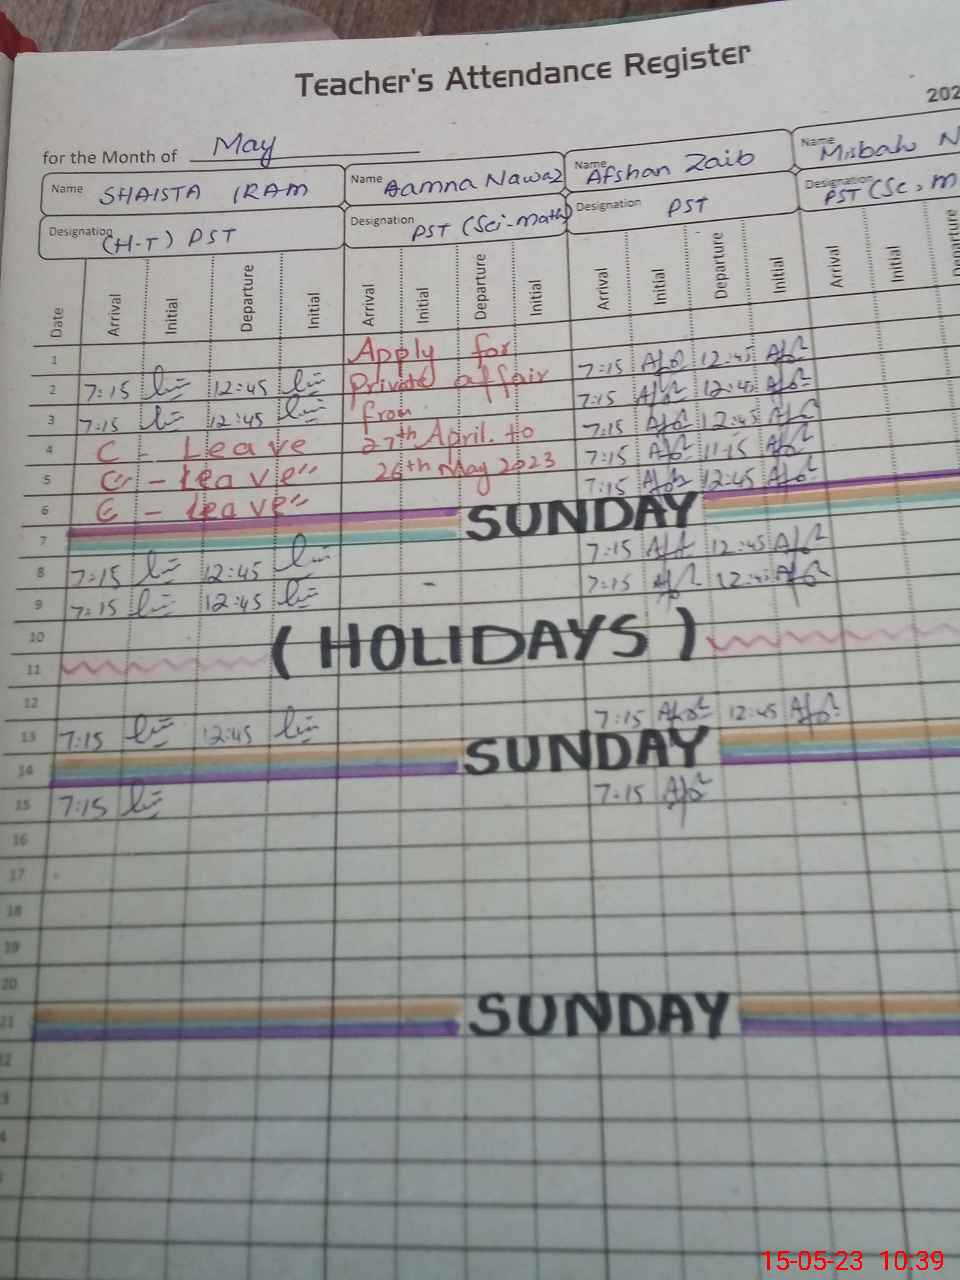 Teacher's Attendance Register
202
for the Month of May
Name SHAISTA IRAM Name Aamna Nawaz Name Afshan Zaib Name Misbah N
Designation (H-T) PST Designation PST (Sci-math) Designation PST Designation PST (Sc, m
Date Arrival Initial Departure Initial Arrival Initial Departure Initial Arrival Initial Departure Initial Arrival Initial Departure
1 Apply for 7:15 12:45
2 7:15 12:45 Private affair 7:15 12:45
3 7:15 12:45 from 7:15 12:45
4 C - Leave 27th April. to 7:15 11-15
5 C - leave" 26th May 2023 7:15 12:45
6 C - leave"
7 SUNDAY
8 7:15 12:45 7:15 12:45
9 7:15 12:45 - 7:15 12:45
10
11 (HOLIDAYS)
12
13 7:15 12:45 7:15 12:45
14 SUNDAY
15 7:15 7:15
16
17
18
19
20
21 SUNDAY
15-05-23 10:39